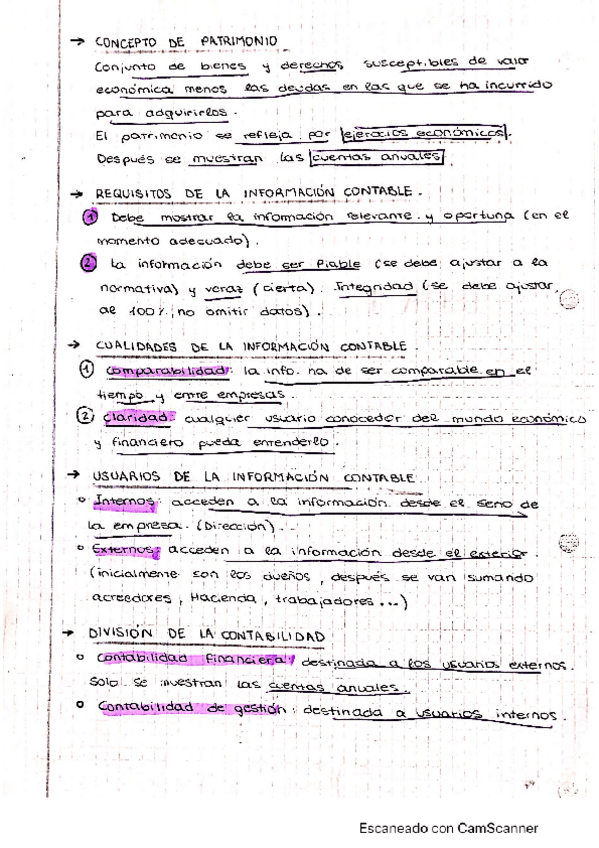 → CONCEPTO DE PATRIMONIO
Conjunto de bienes y derechos susceptibles de valor
económica menos las deudas en las que se ha incurrido
para adquirirlos.
El patrimonio se refleja por ejercicios económicos.
Después se muestran las cuentas anuales.
→ REQUISITOS DE LA INFORMACIÓN CONTABLE.
① Debe mostrar la información relevante y oportuna (en el
momento adecuado).
② La información debe ser fiable (se debe ajustar a la
normativa) y veraz (cierta). Integridad (se debe ajustar
al 100% no omitir datos).
→ CUALIDADES DE LA INFORMACIÓN CONTABLE.
① Comparabilidad: la info. ha de ser comparable en el
tiempo y entre empresas.
② Claridad: cualquier usuario conocedor del mundo económico
y financiero pueda entenderlo.
→ USUARIOS DE LA INFORMACIÓN CONTABLE
• Internos: acceden a la información desde el seno de
la empresa. (Dirección).
• Externos: acceden a la información desde el exterior.
(inicialmente son los dueños, después se van sumando
acreedores, Hacienda, trabajadores...)
→ DIVISIÓN DE LA CONTABILIDAD
• Contabilidad financiera: destinada a los usuarios externos.
Solo se muestran las cuentas anuales.
• Contabilidad de gestión: destinada a usuarios internos.
Escaneado con CamScanner